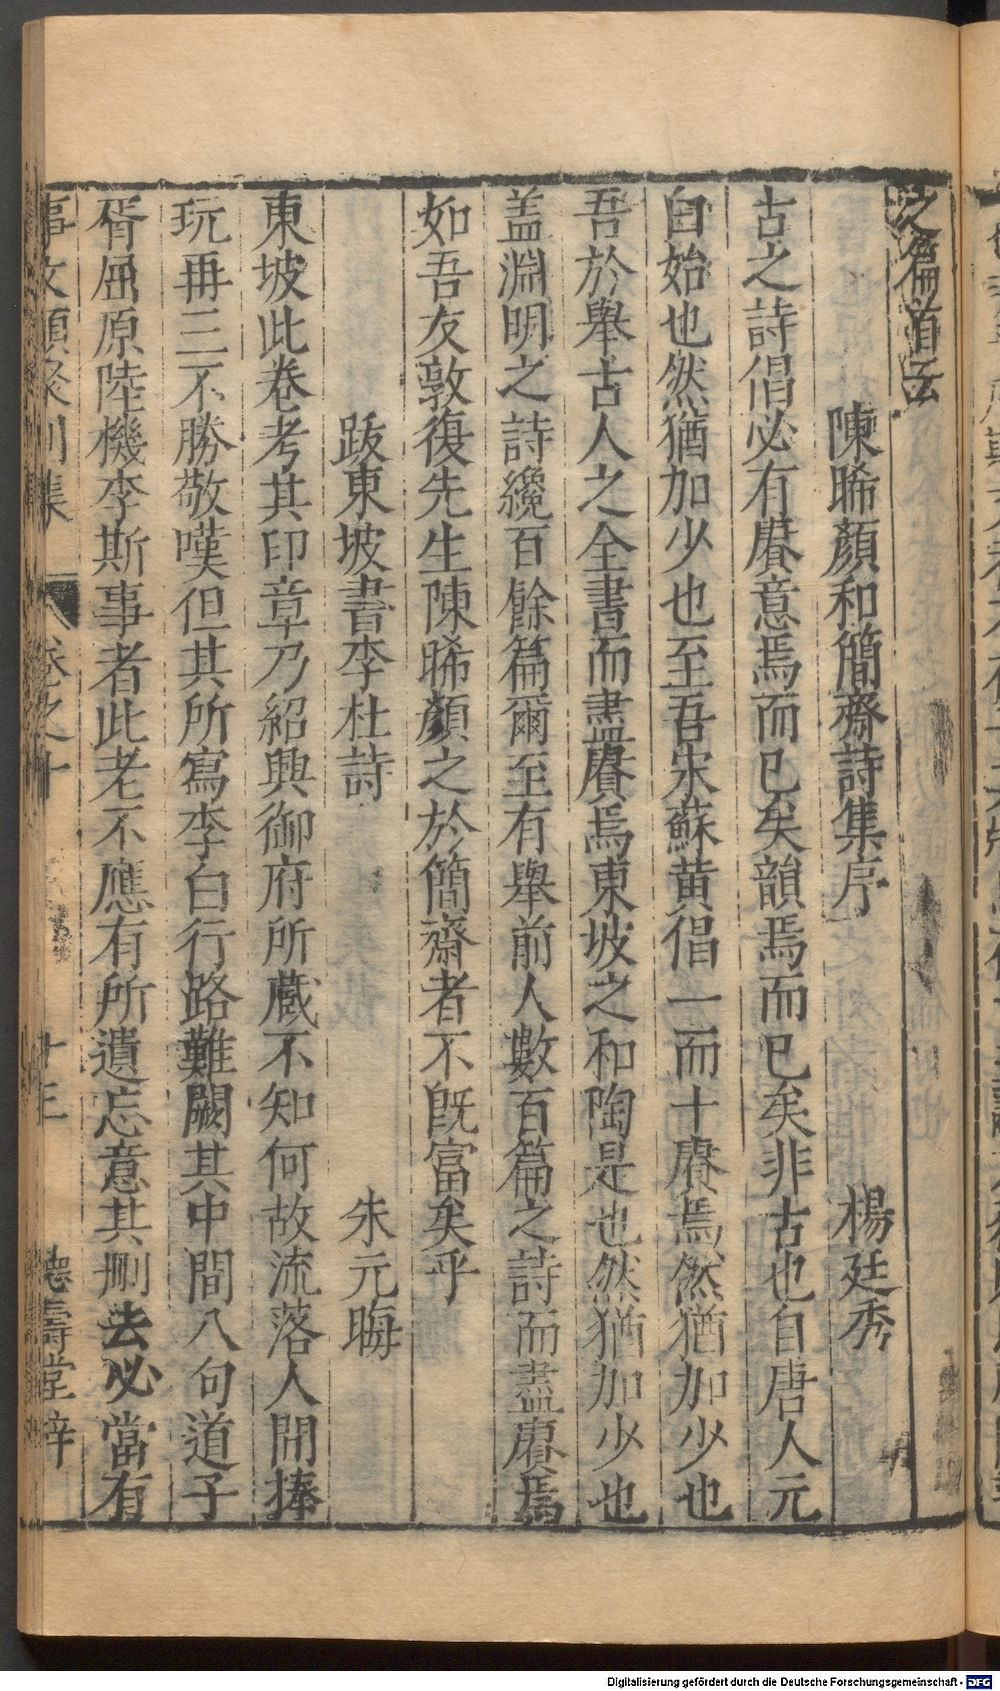 之篇首云
陳晞顏和簡齋詩集序 楊廷秀
古之詩倡必有賡意焉而已矣韻焉而已矣非古也自唐人元
白始也然猶加少也至吾宋蘇黄倡一而十賡焉然猶加少也
吾於舉古人之全書而盡賡焉東坡之和陶是也然猶加少也
盖淵明之詩纔百餘篇爾至有舉前人數百篇之詩而盡賡焉
如吾友敦復先生陳晞顏之於簡齋者不旣富矣乎
跋東坡書李杜詩 朱元晦
東坡此卷考其印章乃紹興御府所藏不知何故流落人間捧
玩再三不勝敬嘆但其所寫李白行路難闕其中間八句道子
胥屈原陸機李斯事者此老不應有所遺忘意其删去必當有
事文類聚別集 卷之十 十三 德壽堂梓
Digitalisierung gefördert durch die Deutsche Forschungsgemeinschaft - DFG